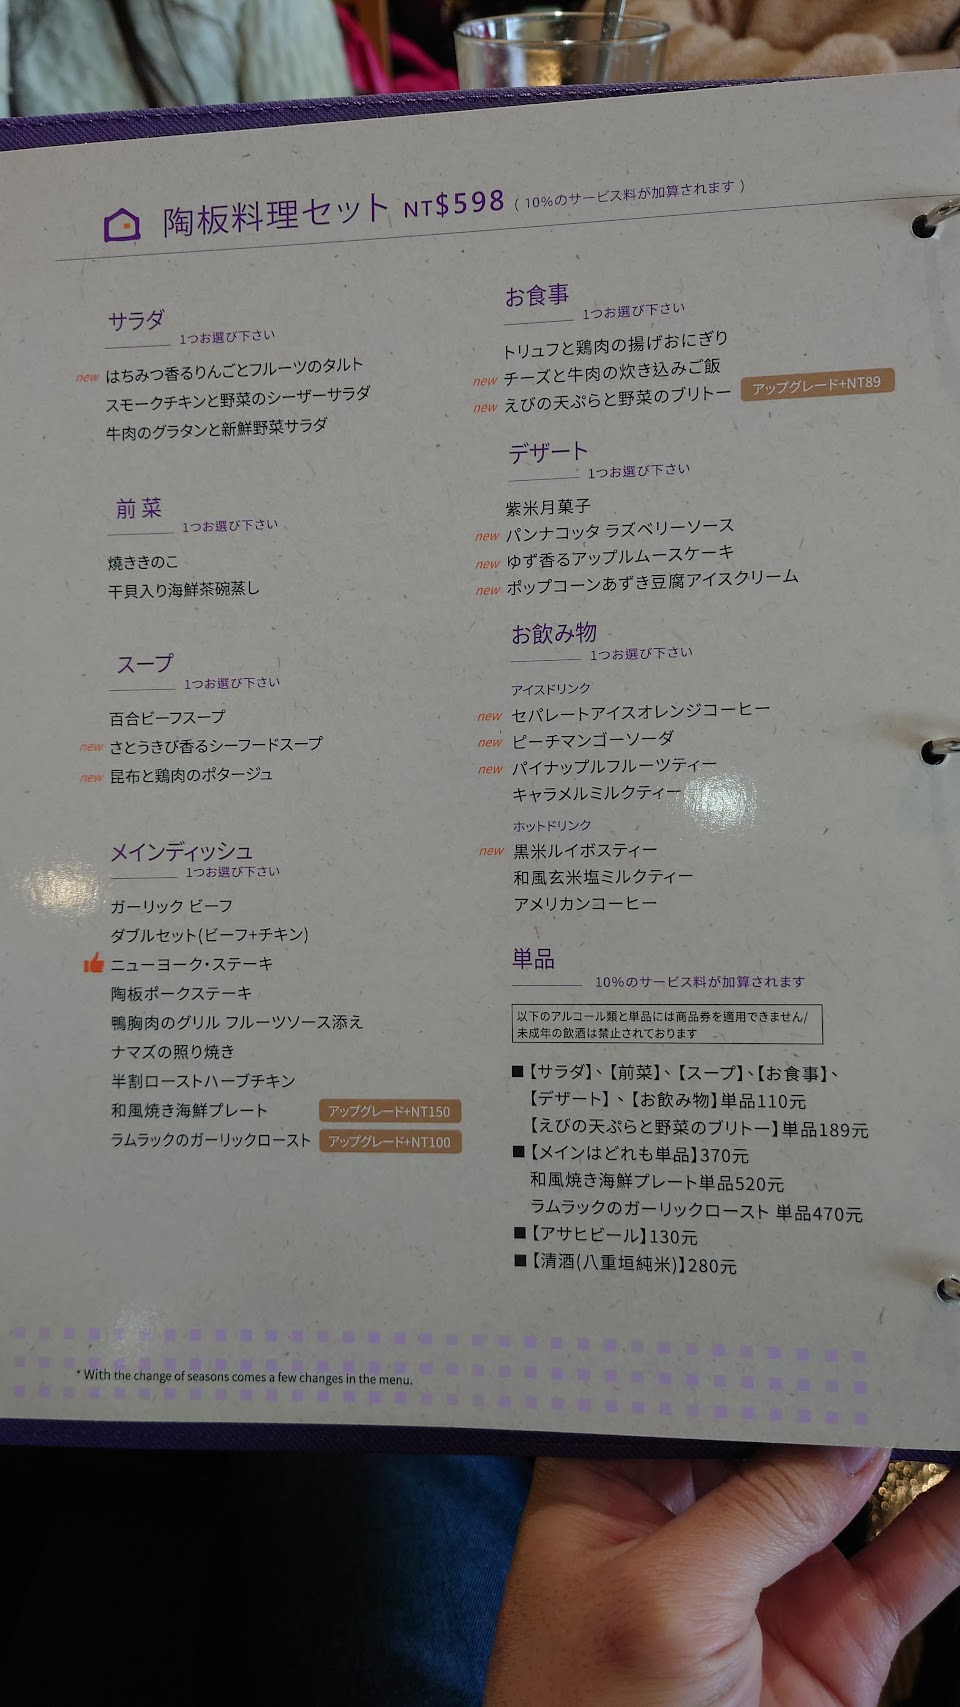 陶板料理セット NT$598 ( 10%のサービス料が加算されます )
サラダ 1つお選び下さい
new はちみつ香るりんごとフルーツのタルト
スモークチキンと野菜のシーザーサラダ
牛肉のグラタンと新鮮野菜サラダ
前菜 1つお選び下さい
焼ききのこ
干貝入り海鮮茶碗蒸し
スープ 1つお選び下さい
百合ビーフスープ
new さとうきび香るシーフードスープ
new 昆布と鶏肉のポタージュ
メインディッシュ 1つお選び下さい
ガーリック ビーフ
ダブルセット(ビーフ+チキン)
ニューヨーク・ステーキ
陶板ポークステーキ
鴨胸肉のグリル フルーツソース添え
ナマズの照り焼き
半割ローストハーブチキン
和風焼き海鮮プレート アップグレード+NT150
ラムラックのガーリックロースト アップグレード+NT100
お食事 1つお選び下さい
トリュフと鶏肉の揚げおにぎり
new チーズと牛肉の炊き込みご飯
new えびの天ぷらと野菜のブリトー アップグレード+NT89
デザート 1つお選び下さい
紫米月菓子
new パンナコッタ ラズベリーソース
new ゆず香るアップルムースケーキ
new ポップコーンあずき豆腐アイスクリーム
お飲み物 1つお選び下さい
アイスドリンク
new セパレートアイスオレンジコーヒー
new ピーチマンゴーソーダ
new パイナップルフルーツティー
キャラメルミルクティー
ホットドリンク
new 黒米ルイボスティー
和風玄米塩ミルクティー
アメリカンコーヒー
単品 10%のサービス料が加算されます
以下のアルコール類と単品には商品券を適用できません/
未成年の飲酒は禁止されております
■【サラダ】、【前菜】、【スープ】、【お食事】、
【デザート】、【お飲み物】単品110元
【えびの天ぷらと野菜のブリトー】単品189元
■【メインはどれも単品】370元
和風焼き海鮮プレート単品520元
ラムラックのガーリックロースト 単品470元
■【アサヒビール】130元
■【清酒(八重垣純米)】280元
* With the change of seasons comes a few changes in the menu.